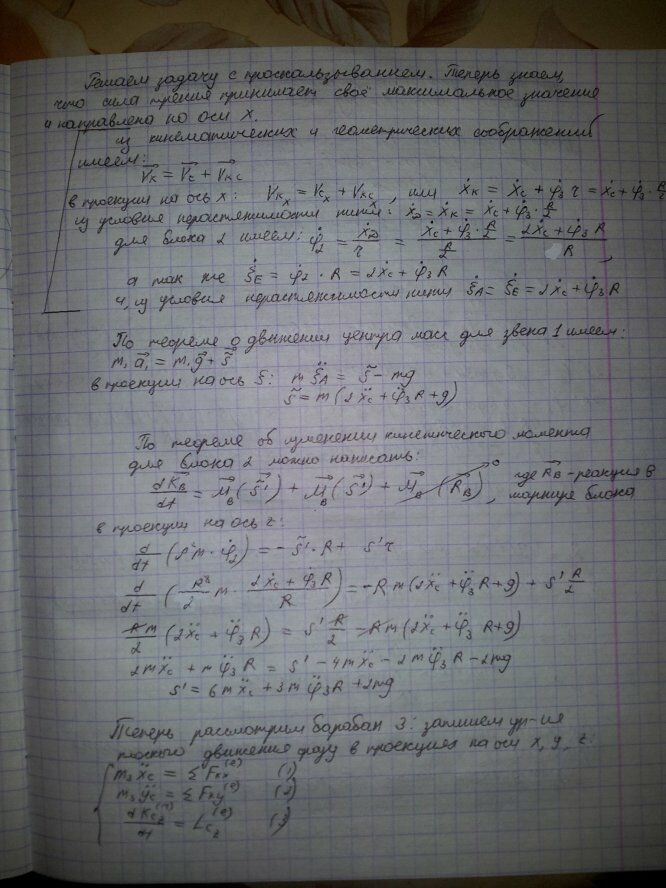 Решаем задачу с проскальзыванием. Теперь знаем,
что сила трения принимает своё максимальное значение
и направлена по оси x.
из кинематических и геометрических соображений
имеем:
V⃗_K = V⃗_C + V⃗_KC
в проекции на ось x: V_Kx = V_Cx + V_KCx, или ẋ_K = ẋ_C + φ̇_3 r = ẋ_C + φ̇_3 · R/2
из условия нерастяжимости нити: ẋ_D = ẋ_K = ẋ_C + φ̇_3 R/2
для блока 2 имеем: φ̇_2 = ẋ_D/r = (ẋ_C + φ̇_3 · R/2)/(R/2) = (2ẋ_C + φ̇_3 R)/R,
а так же Ṡ_E = φ̇_2 · R = 2ẋ_C + φ̇_3 R
и, из условия нерастяжимости нити Ṡ_A = Ṡ_E = 2ẋ_C + φ̇_3 R
По теореме о движении центра масс для звена 1 имеем:
m_1 a⃗_1 = m_1 g⃗ + S̃
в проекции на ось S: m S̈_A = S̃ - mg
S̃ = m(2ẍ_C + φ̈_3 R + g)
По теореме об изменении кинетического момента
для блока 2 можно написать:
dK⃗_B/dt = M⃗_B(S̃') + M⃗_B(S⃗') + M⃗_B(R⃗_B) 0, где R⃗_B - реакция в
шарнире блока
в проекции на ось z:
d/dt (ρ²m · φ̇_2) = -S̃' · R + S' r
d/dt (R²/2 m · (2ẋ_C + φ̇_3 R)/R) = -R m(2ẍ_C + φ̈_3 R + g) + S' R/2
Rm/2 (2ẍ_C + φ̈_3 R) = S' R/2 - Rm(2ẍ_C + φ̈_3 R + g)
2mẍ_C + mφ̈_3 R = S' - 4mẍ_C - 2mφ̈_3 R - 2mg
S' = 6mẍ_C + 3mφ̈_3 R + 2mg
Теперь рассмотрим барабан 3: запишем ур-ия
плоского движения в проекциях на оси x, y, z:
m_3 ẍ_C = Σ F_kx^(e) (1)
m_3 ÿ_C = Σ F_ky^(e) (2)
dK_Cz^(r)/dt = L_Cz^(e) (3)